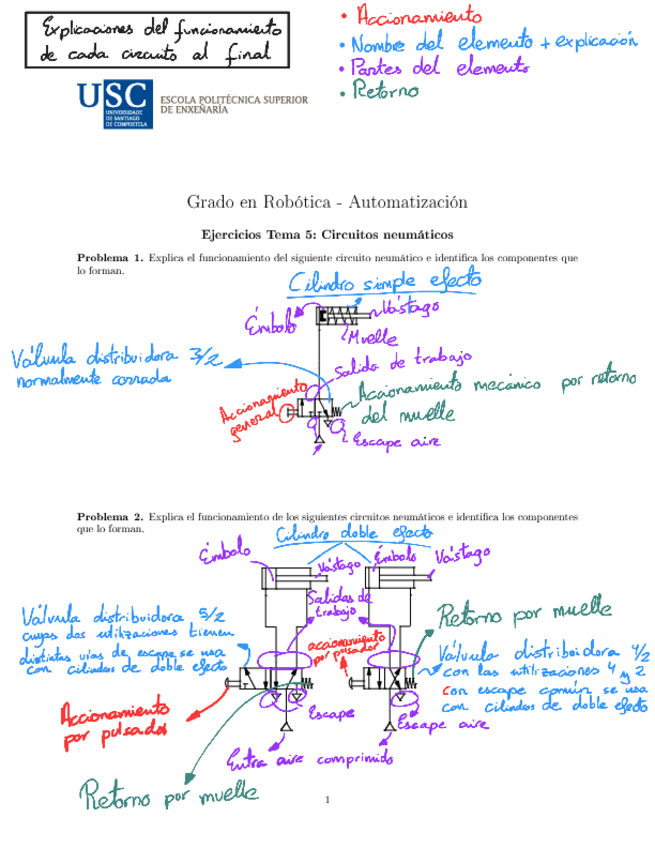 Explicaciones del funcionamiento
de cada circuito al final
• Accionamiento
• Nombre del elemento + explicación
• Partes del elemento
• Retorno
USC
UNIVERSIDADE
DE SANTIAGO
DE COMPOSTELA
ESCOLA POLITÉCNICA SUPERIOR
DE ENXEÑARÍA
Grado en Robótica - Automatización
Ejercicios Tema 5: Circuitos neumáticos
Problema 1. Explica el funcionamiento del siguiente circuito neumático e identifica los componentes que
lo forman.
Cilindro simple efecto
Émbolo
Vástago
Muelle
Válvula distribuidora 3/2
normalmente cerrada
Salida de trabajo
Accionamiento
general
Accionamiento mecánico por retorno
del muelle
Escape aire
Problema 2. Explica el funcionamiento de los siguientes circuitos neumáticos e identifica los componentes
que lo forman.
Cilindro doble efecto
Émbolo
Vástago
Émbolo
Vástago
Salidas de
trabajo
Retorno por muelle
Válvula distribuidora 5/2
cuyas dos utilizaciones tienen
distintas vías de escape se usa
con cilindros de doble efecto
accionamiento
por pulsador
Válvula distribuidora 4/2
con las utilizaciones 4 y 2
con escape común se usa
con cilindros de doble efecto
Accionamiento
por pulsador
Escape
Escape aire
Entra aire comprimido
Retorno por muelle
1